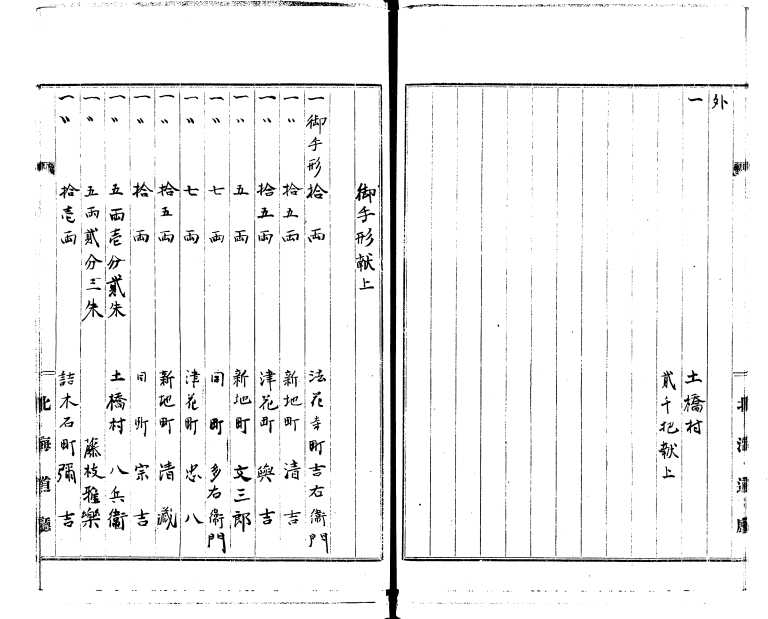 外
一 土橋村
貳千把献上
北海道廳
御手形献上
一 御手形 拾両 法花寺町 吉右衞門
一 〃 拾五両 新地町 清吉
一 〃 拾五両 津花町 與吉
一 〃 五両 新地町 文三郎
一 〃 七両 同町 多右衞門
一 〃 七両 津花町 忠八
一 〃 拾五両 新地町 清藏
一 〃 拾両 同町 宗吉
一 〃 五両壱分貳朱 土橋村 八兵衞
一 〃 五両貳分三朱 藤枝雅樂
一 〃 拾壱両 詰木石町 彌吉
北海道廳